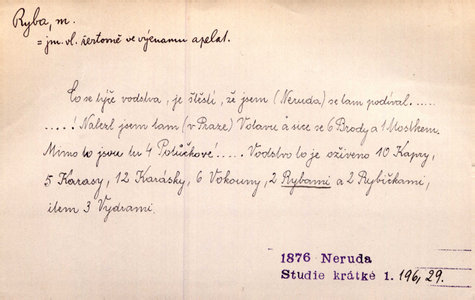 Ryba, m.
= jm. vl. žertovně ve významu apelat.
Co se týče vodstva, je štěstí, že jsem (Neruda) se tam podíval......
.....! Nalezl jsem tam (v Praze) Votavu a sice se 6 Brody a 1 Mostkem.
Mimo to jsou tu 4 Potůčkové!..... Vodstvo to je oživeno 10 Kapry,
5 Karasy, 12 Karásky, 6 Vokouny, 2 Rybami a 2 Rybičkami,
item 3 Vydrami.
1876 Neruda
Studie krátké 1. 196, 29.